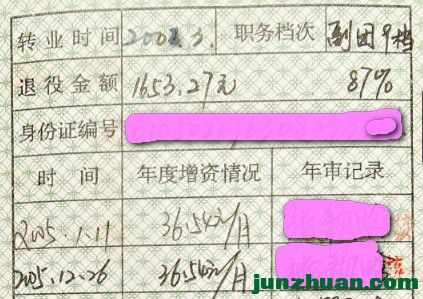 转业时间 2002.3. 职务档次 副团9档
退役金额 1653.27元 87%
身份证编号
时间 年度增资情况 年审记录
2005.1.11 36.54元/月
2005.12.26 36.54元/月
junzhuan.com